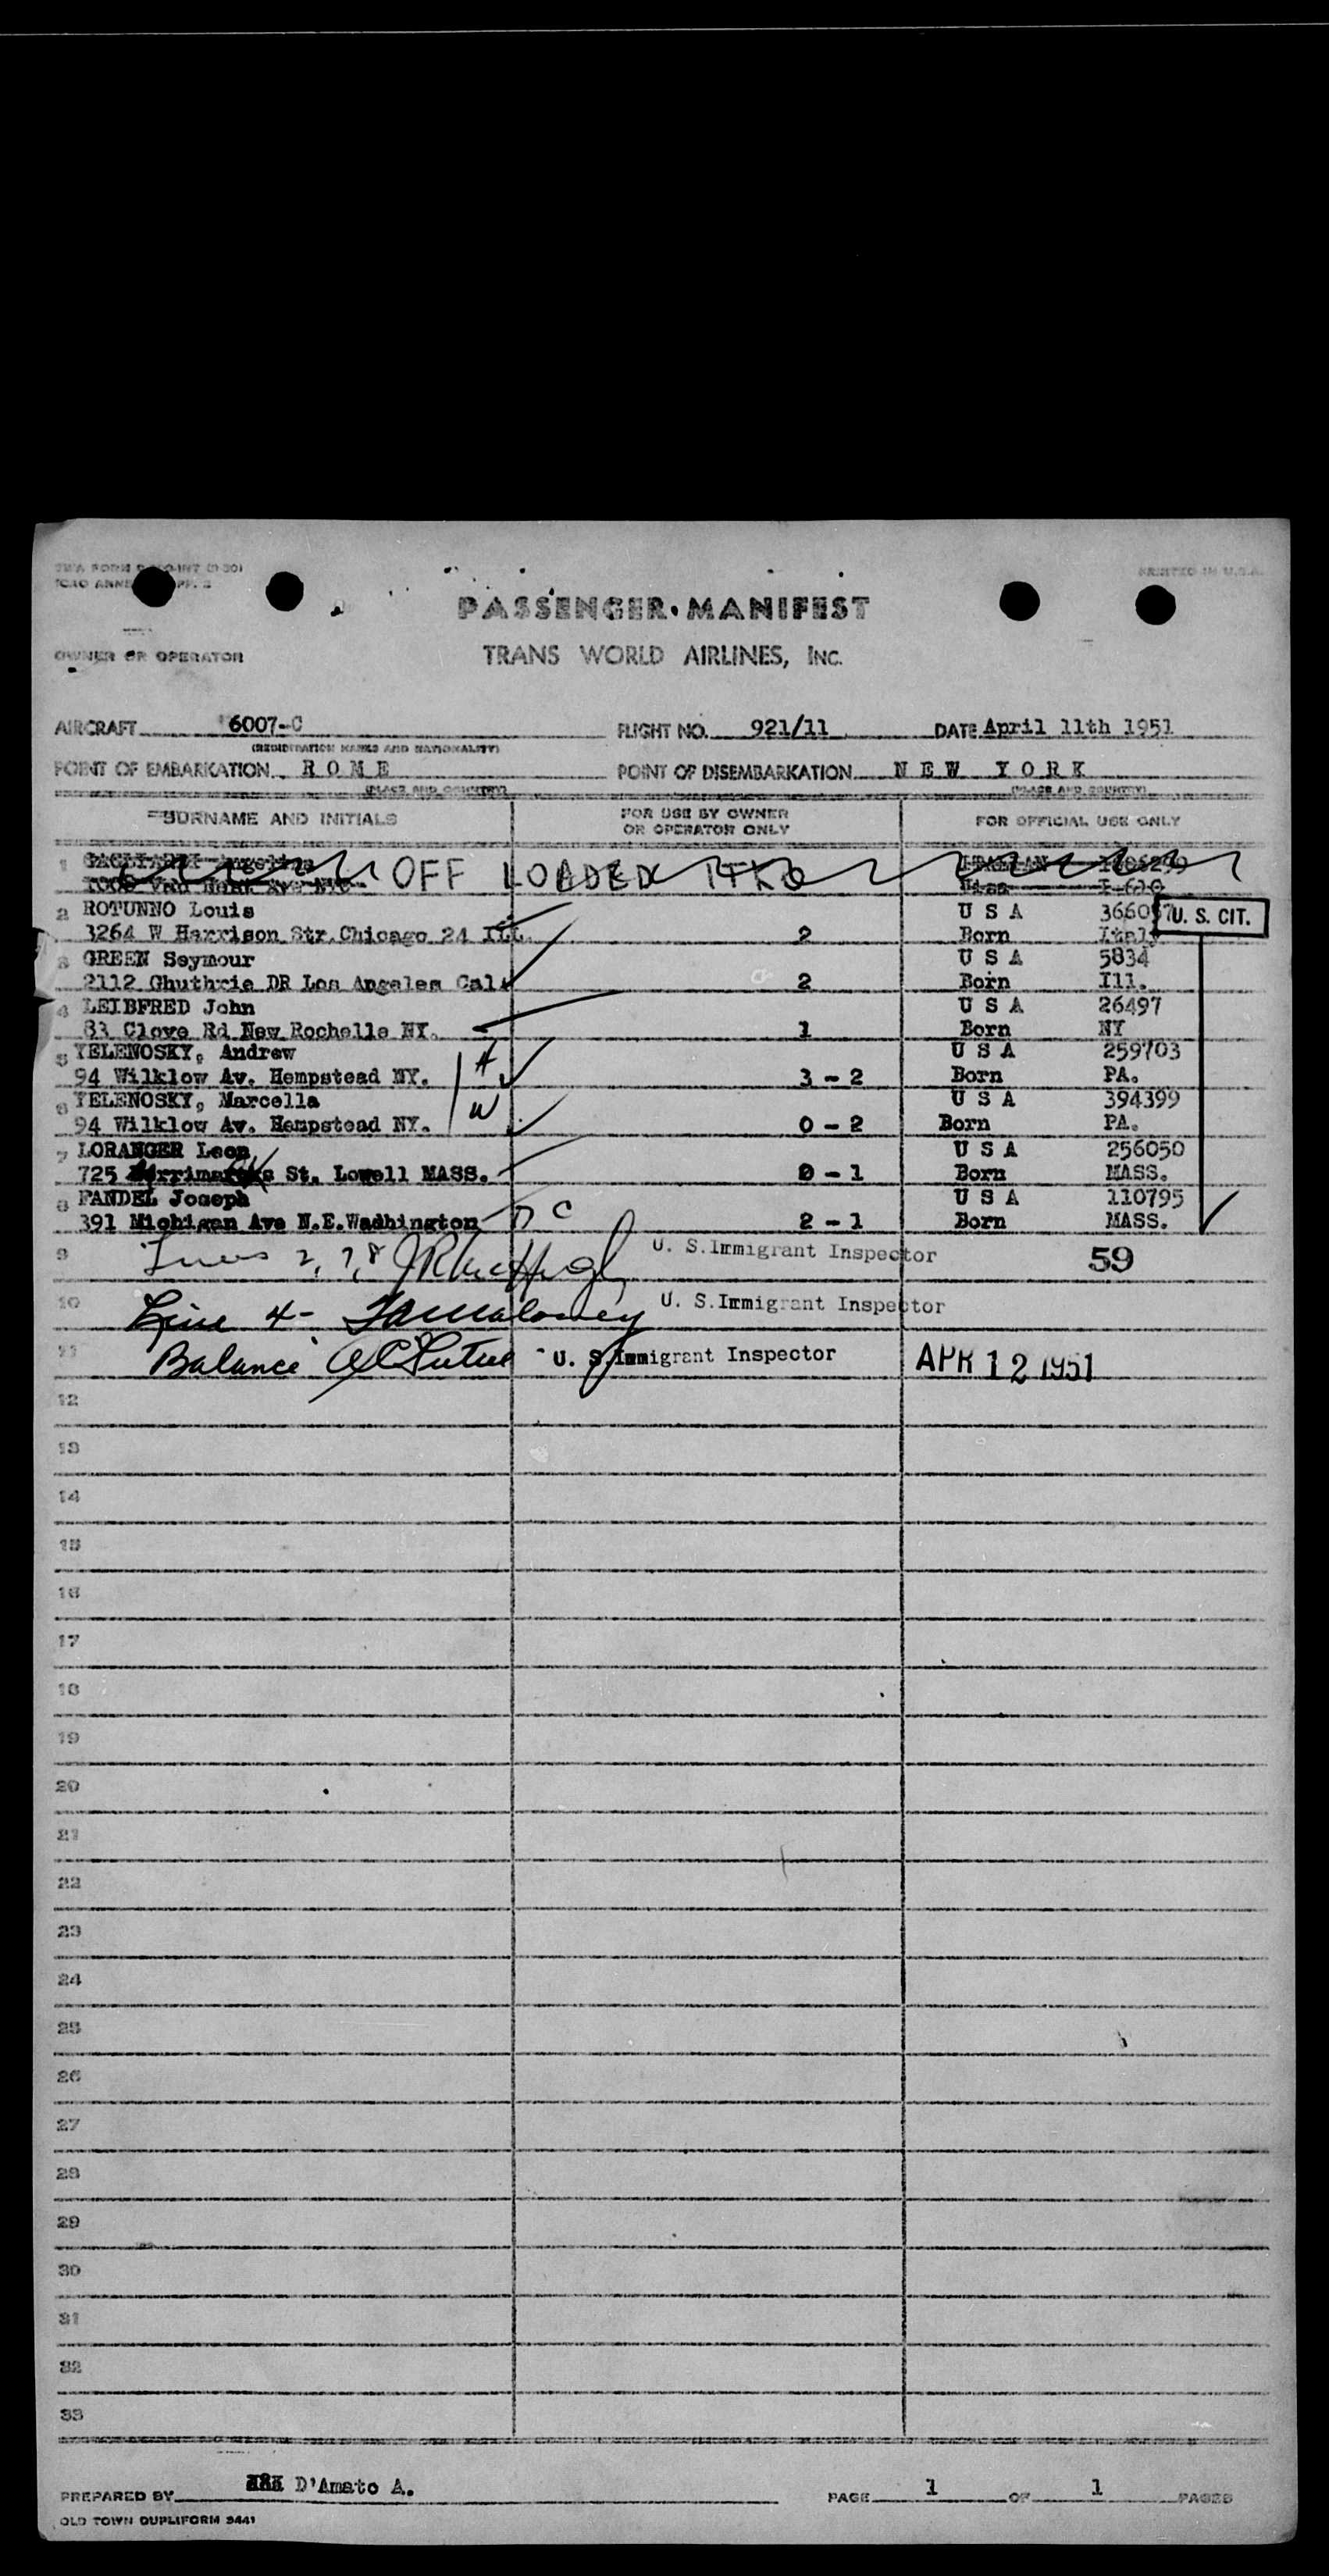 PRINTED IN U.S.A.
PASSENGER MANIFEST
OWNER OR OPERATOR TRANS WORLD AIRLINES, INC.
AIRCRAFT 6007-C FLIGHT NO. 921/11 DATE April 11th 1951
(REGISTRATION MARKS AND NATIONALITY)
POINT OF EMBARKATION R O M E POINT OF DISEMBARKATION N E W Y O R K
(PLACE AND COUNTRY) (PLACE AND COUNTRY)
SURNAME AND INITIALS FOR USE BY OWNER OR OPERATOR ONLY FOR OFFICIAL USE ONLY
1 OFF LOADED
2 ROTUNNO Louis U S A U. S. CIT.
3264 W Harrison Str.Chicago 24 ILL. 2 Born Italy
3 GREEN Seymour U S A 5834
2112 Ghuthrie DR Los Angeles Cal. 2 Born Ill.
4 LEIBFRED John U S A 26497
83 Clove Rd New Rochelle NY. 1 Born NY
5 YELENOSKY, Andrew H U S A 259703
94 Wilklow Av. Hempstead NY. 3 - 2 Born PA.
6 YELENOSKY, Marcella W U S A 394399
94 Wilklow Av. Hempstead NY. 0 - 2 Born PA.
7 LORANGER Leon U S A 256050
725 St. Lowell MASS. 0 - 1 Born MASS.
8 FANDEL Joseph U S A 110795
391 Michigan Ave N.E.Wadhington D C 2 - 1 Born MASS.
9 Lines 2, 7, 8 U. S. Immigrant Inspector 59
10 Line 4- U. S. Immigrant Inspector
11 Balance U. S. Immigrant Inspector APR 12 1951
12
13
14
15
16
17
18
19
20
21
22
23
24
25
26
27
28
29
30
31
32
33
PREPARED BY D'Amato A. PAGE 1 OF 1 PAGES
OLD TOWN DUPLIFORM 9441